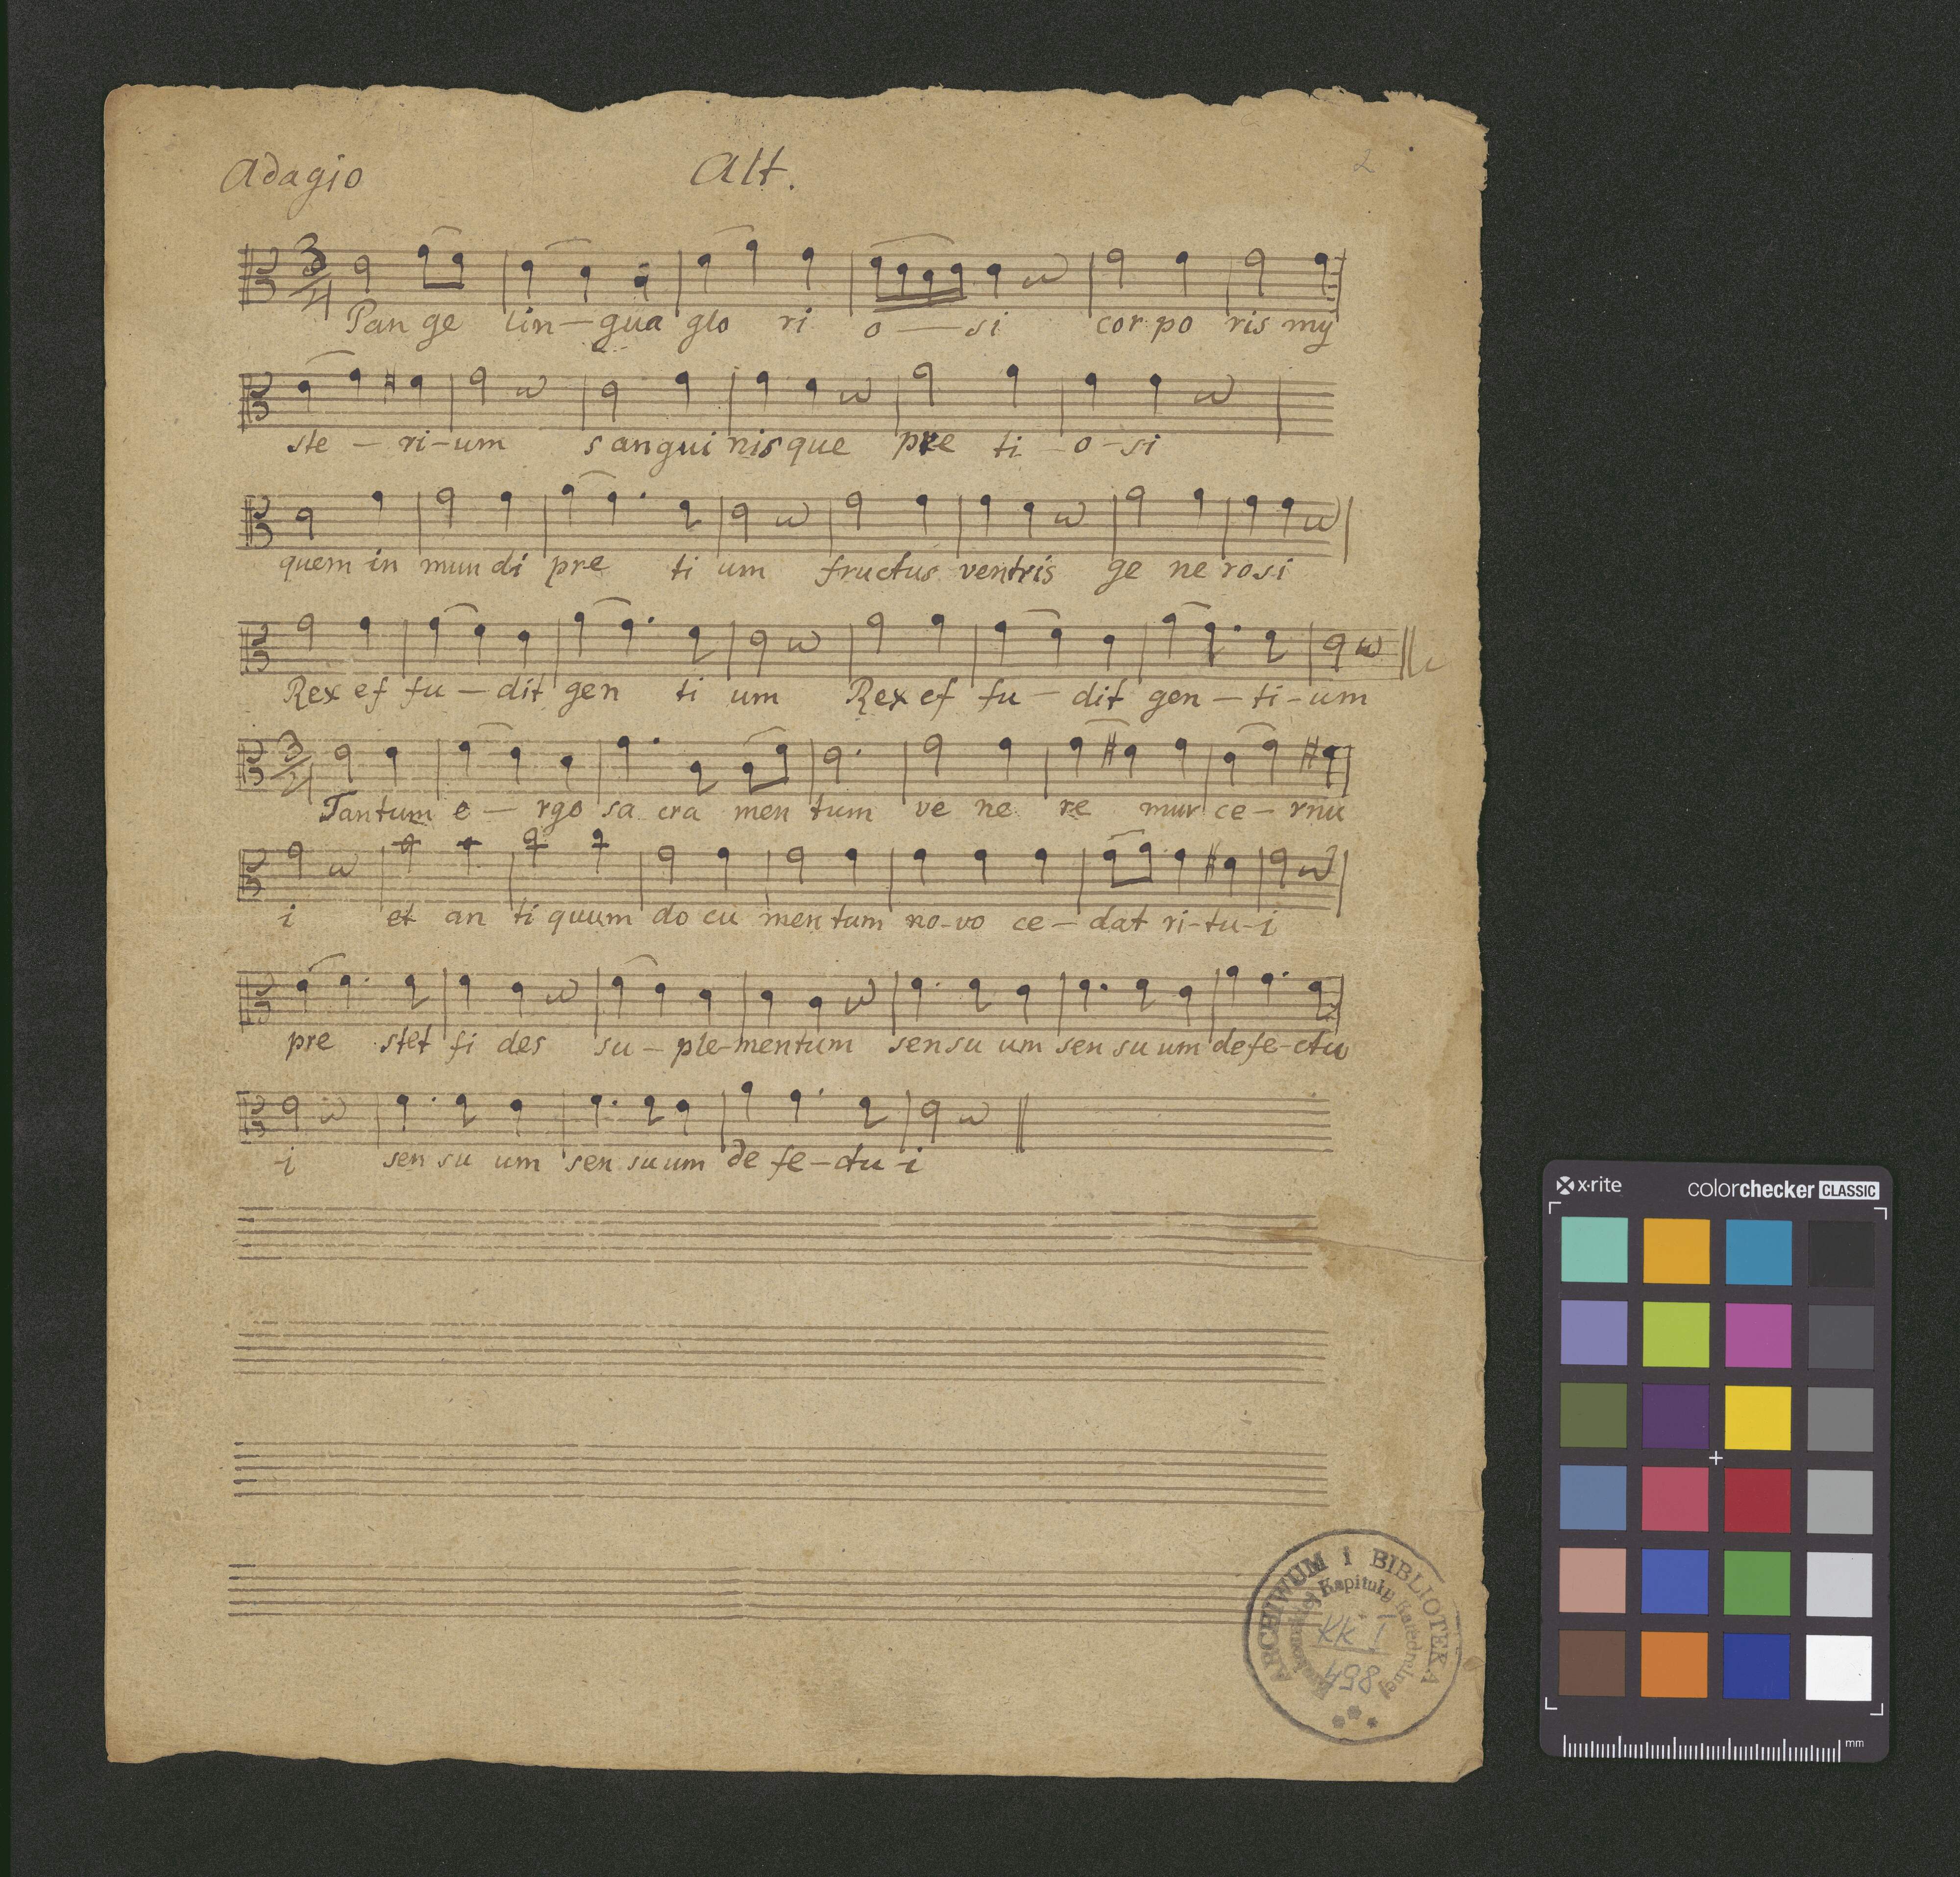 Adagio Alt. 2
3/4
Pan ge lin—gua glo ri o—si cor po ris my
ste—ri-um sangui nisque pre ti—o-si
quem in mun di pre ti um fructus ventris ge ne rosi
Rex ef fu—dit gen ti um Rex ef fu—dit gen—ti-um
3/4
Tantum e—rgo sa cra men tum ve ne re mur ce—rnu
i et an ti quum do cu men tum no-vo ce—dat ri-tu-i
pre stet fi des su—ple-mentum sensu um sen su um defe-ctu
-i sen su um sen su um de fe—ctu-i
ARCHIWUM i BIBLIOTEKA
Krakowskiej Kapituły Katedralnej
KK I
854
x·rite colorchecker CLASSIC
mm